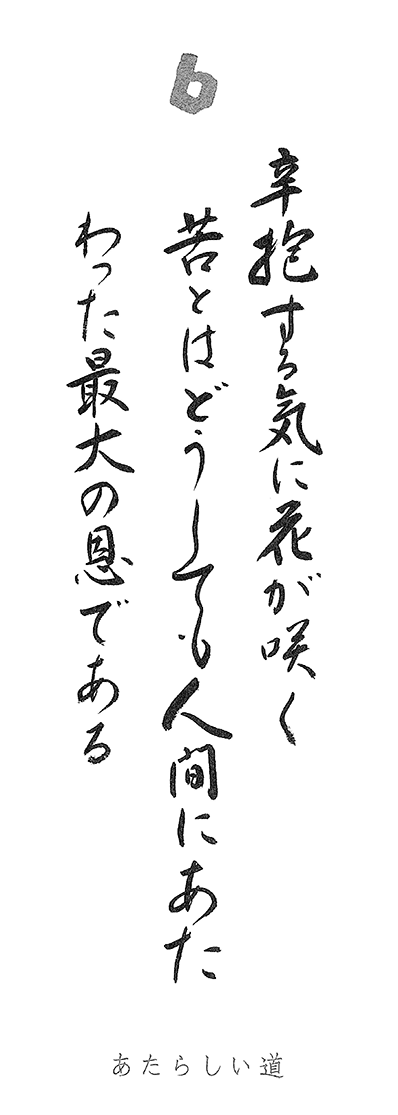 6
辛抱する気に花が咲く
苦とはどうしても人間にあた
わった最大の恩である
あたらしい道